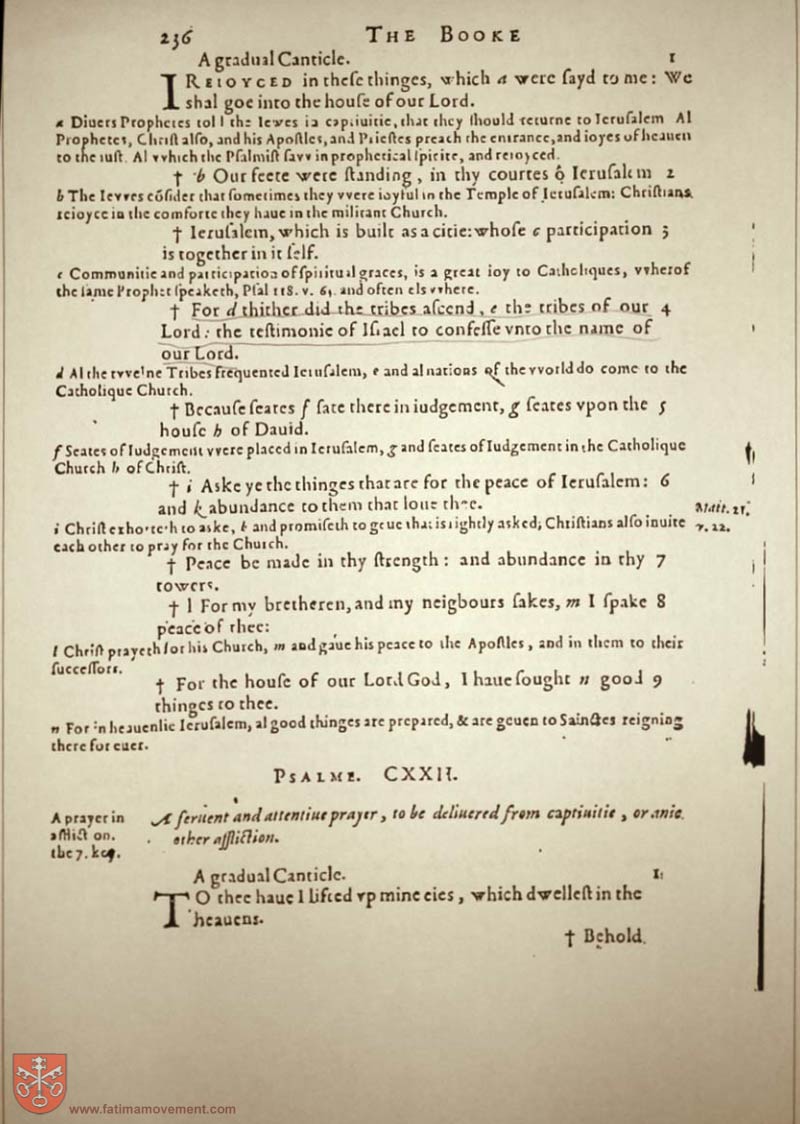 236 THE BOOKE
A gradual Canticle. 1
I REIOYCED in theſe thinges, which a were ſayd to me: We
shal goe into the houſe of our Lord.
a Diuers Prophetes told the Iewes in captiuitie, that they ſhould returne to Ieruſalem Al
Prophetes, Chriſt alſo, and his Apoſtles, and Prieſtes preach the entrance, and ioyes of heauen
to the iuſt. Al vvhich the Pſalmiſt ſavv in prophetical ſpirite, and reioyced.
† b Our feete were ſtanding, in thy courtes ô Ieruſalem 2
b The Ievves cõſider that ſometimes they vvere ioyful in the Temple of Ieruſalem: Chriſtians
reioyce in the comforte they haue in the militant Church.
† Ieruſalem, which is built as a citie: whoſe c participation 3
is together in it ſelf.
c Communitie and participation of ſpiritual graces, is a great ioy to Catholiques, vvherof
the ſame Prophet ſpeaketh, Pſal 118. v. 63. and often els vvhere.
† For d thither did the tribes aſcend, e the tribes of our 4
Lord: the teſtimonie of Iſrael to confeſſe vnto the name of
our Lord.
d Al the tvvelue Tribes frequented Ieruſalem, e and al nations of the vvorld do come to the
Catholique Church.
† Becauſe ſeates f ſate there in iudgement, g ſeates vpon the 5
houſe h of Dauid.
f Seates of Iudgement vvere placed in Ieruſalem, g and ſeates of Iudgement in the Catholique
Church h of Chriſt.
† i Aske ye the thinges that are for the peace of Ieruſalem: 6
and k abundance to them that loue thee. Matt. 21,
i Chriſt exhorteth to aske, k and promiſeth to geue that is rightly asked; Chriſtians alſo inuite v. 22.
each other to pray for the Church.
† Peace be made in thy ſtrength: and abundance in thy 7
towers.
† l For my bretheren, and my neigbours ſakes, m I ſpake 8
peace of thee:
l Chriſt prayeth for his Church, m and gaue his peace to the Apoſtles, and in them to their
ſucceſſors.
† For the houſe of our Lord God, I haue ſought n good 9
thinges to thee.
n For in heauenlie Ieruſalem, al good thinges are prepared, & are geuen to Sainctes reigning
there for euer.
PSALME. CXXII.
A prayer in
afflictiō.
the 7. key.
A feruent and attentiue prayer, to be deliuered from captiuitie, or anie
other affliction.
A gradual Canticle. 1
TO thee haue I lifted vp mine eies, which dwelleſt in the
heauens.
† Behold.
www.fatimamovement.com